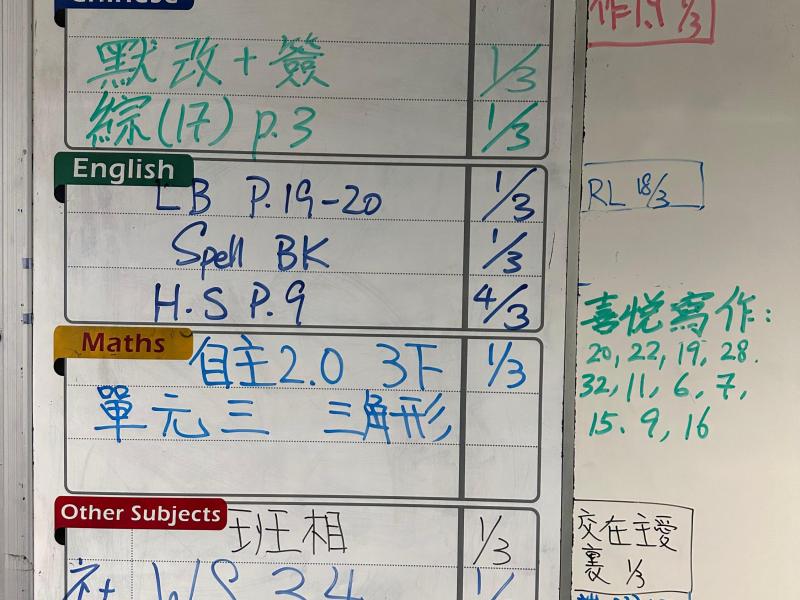 Chinese
默改+簽 1/3
綜(17) p.3 1/3
English
LB P.19-20 1/3
Spell BK 1/3
H.S P.9 4/3
Maths
自主2.0 3下 1/3
單元三 三角形
Other Subjects
班相 1/3
WS 34
作1.9 1/3
RL 18/3
喜悅寫作:
20, 22, 19, 28.
32, 11, 6, 7,
15. 9, 16
交在主愛
裏 1/3